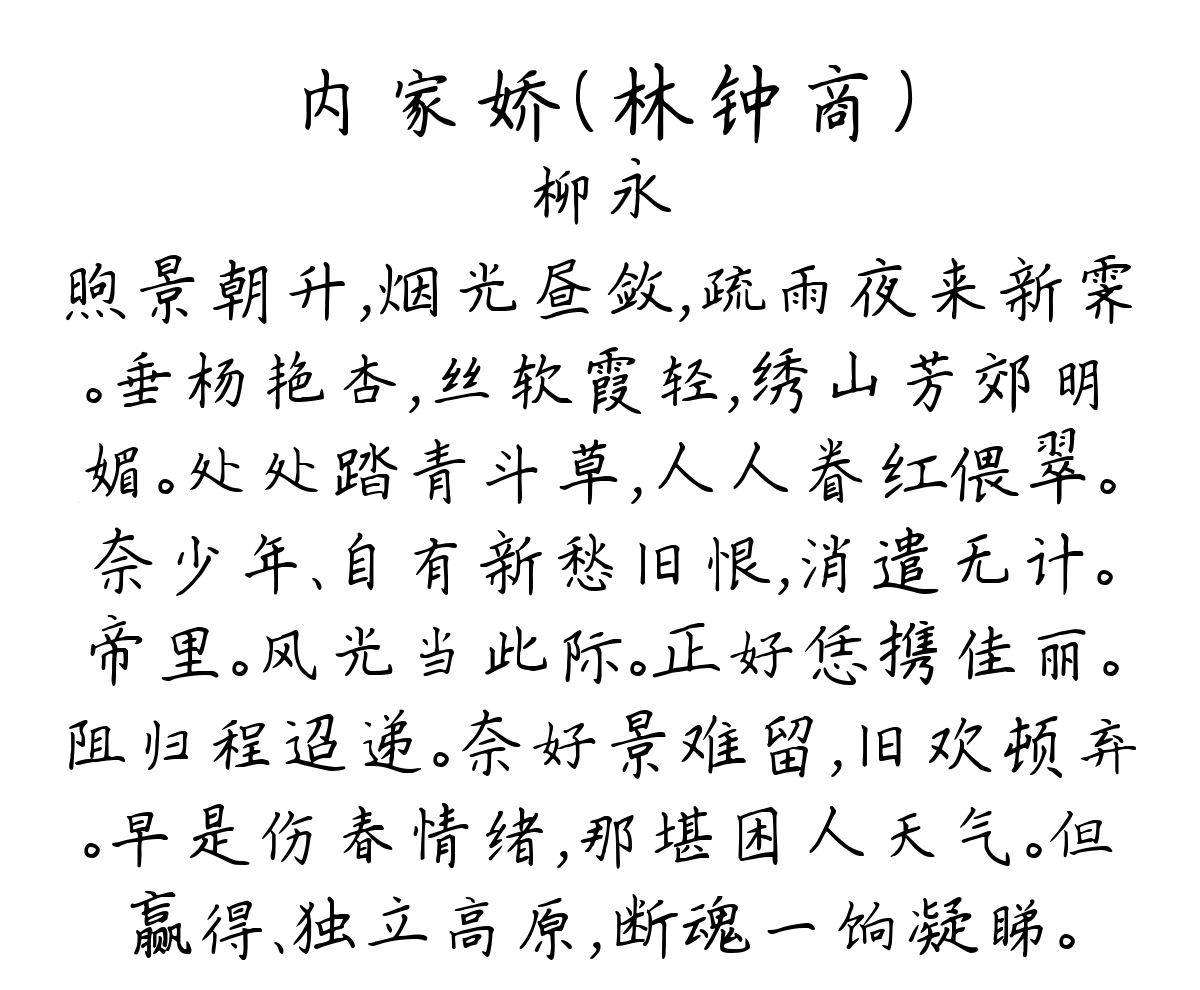 内家娇(林钟商)
柳永
煦景朝升,烟光昼敛,疏雨夜来新霁
。垂杨艳杏,丝软霞轻,绣山芳郊明
媚。处处踏青斗草,人人眷红偎翠。
奈少年、自有新愁旧恨,消遣无计。
帝里。风光当此际。正好恁携佳丽。
阻归程迢递。奈好景难留,旧欢顿弃
。早是伤春情绪,那堪困人天气。但
赢得、独立高原,断魂一饷凝睇。